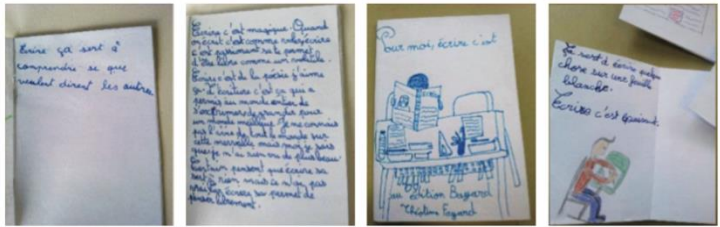 Ecrire ça sert à
comprendre se que
veulent dirent les autres.
Ecrire c'est magique. Quand
on écrit c'est comme
c'est passionant sa te permet
d'être libre comme un
Ecrire c'est de la poésie j'aime
ça. L'écriture c'est ça qui a
permis au monde entier de
pour
un monde meilleur. Je ne connais
pas l'avis de tout le monde sur
cette merveille mais moi je sais
que je n'ai rien vu de plus beau.
Certain pensent que écrire sa
sert à rien mais ce n'est pas
vrai, écrire sa permet de
penser librement.
Pour moi, écrire c'est
au édition Bayard
Fayard
Ça sert d'écrire quelque
chose sur une feuille
blanche.
Ecrire c'est